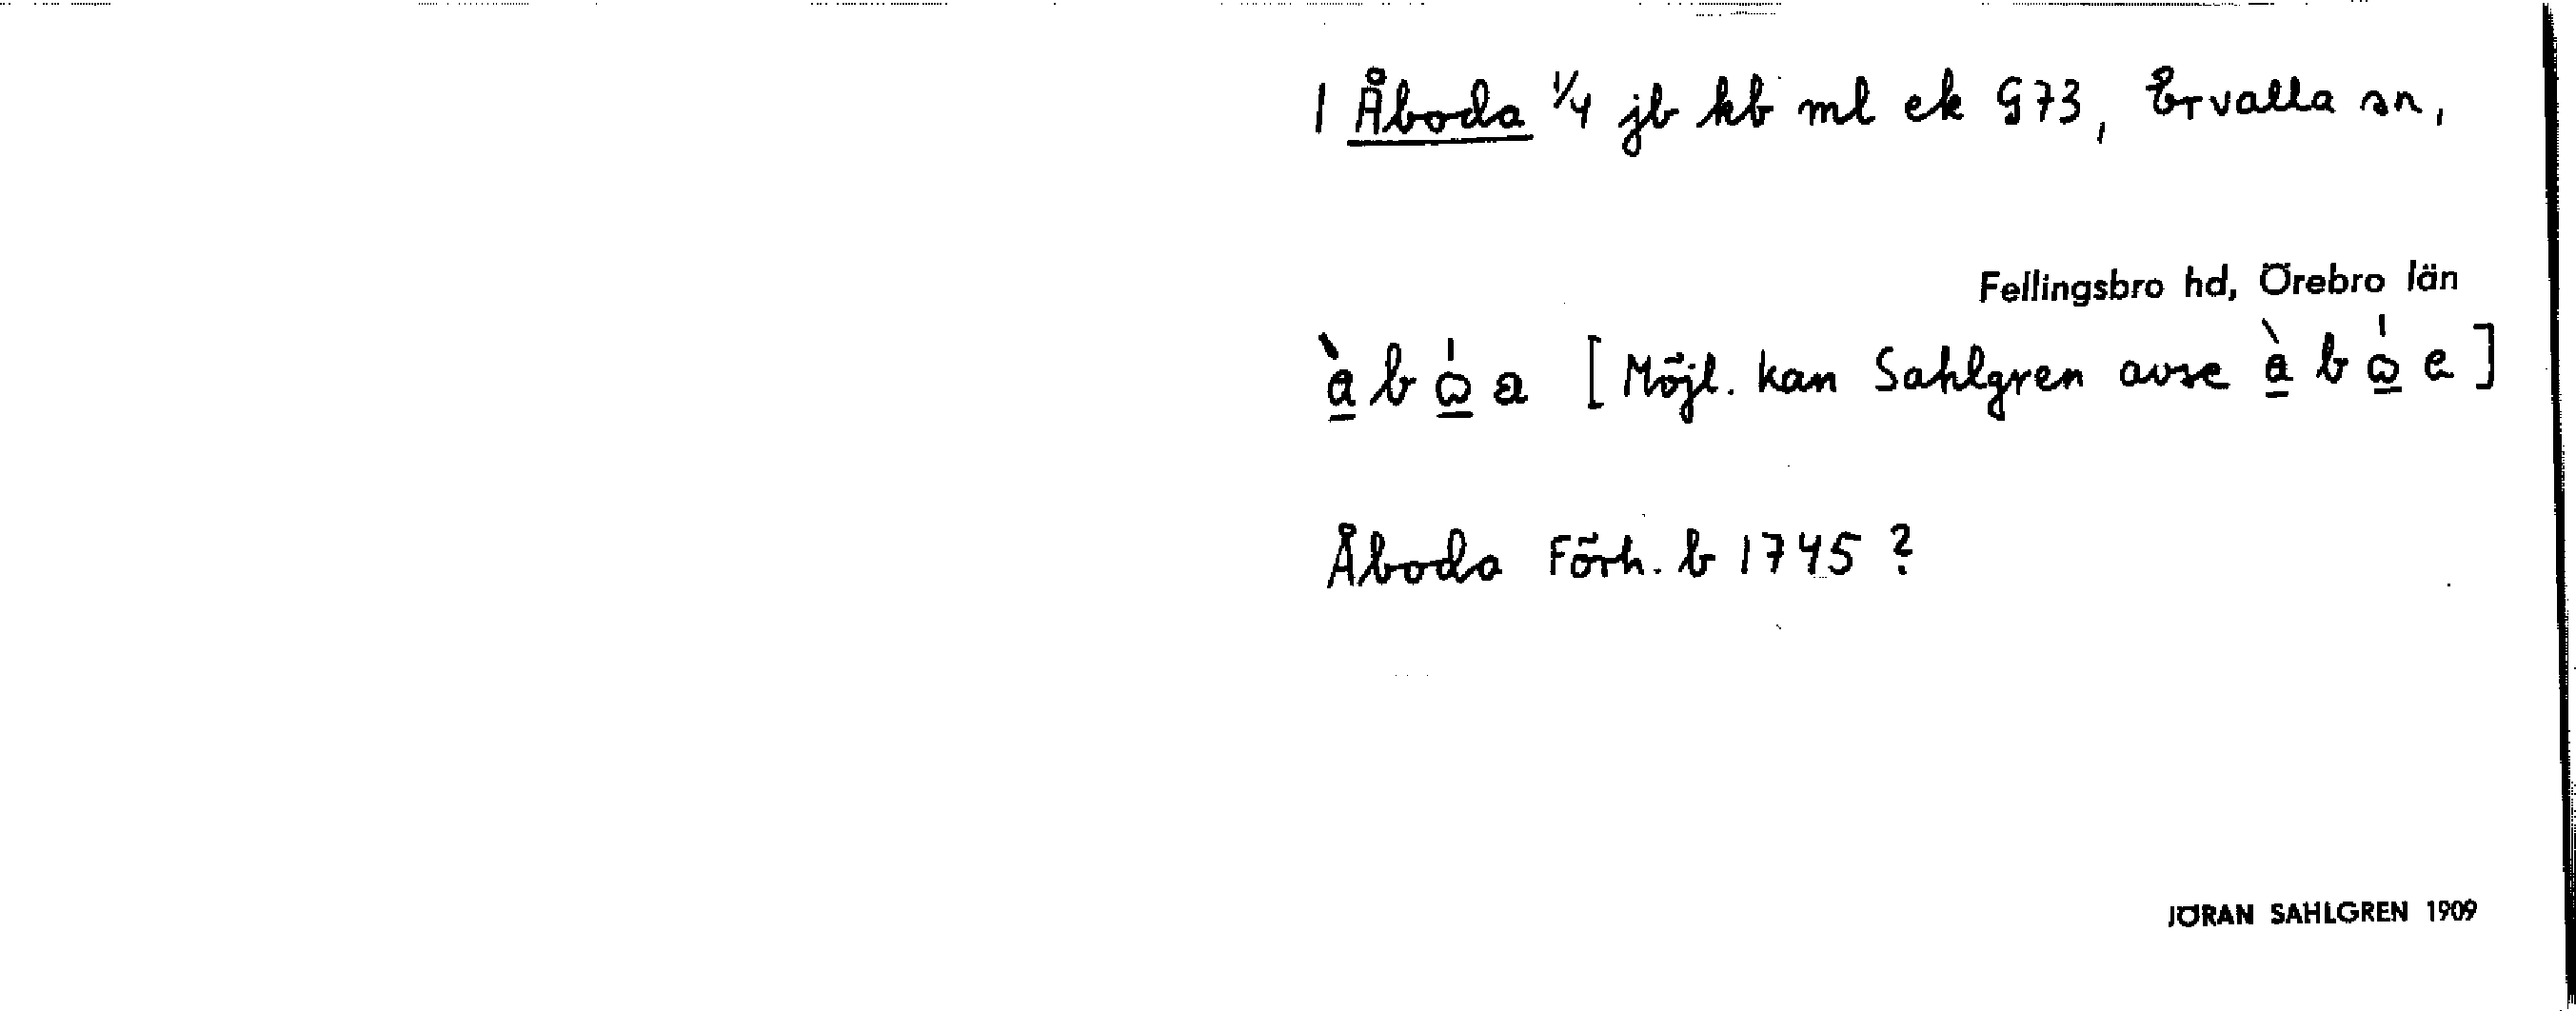 1 Åboda 1/4 jb kb ml ek G73, Ervalla sn,
Fellingsbro hd, Örebro län
[Möjl. kan Sahlgren avse
Åboda Förh. b 1745 ?
JÖRAN SAHLGREN 1909